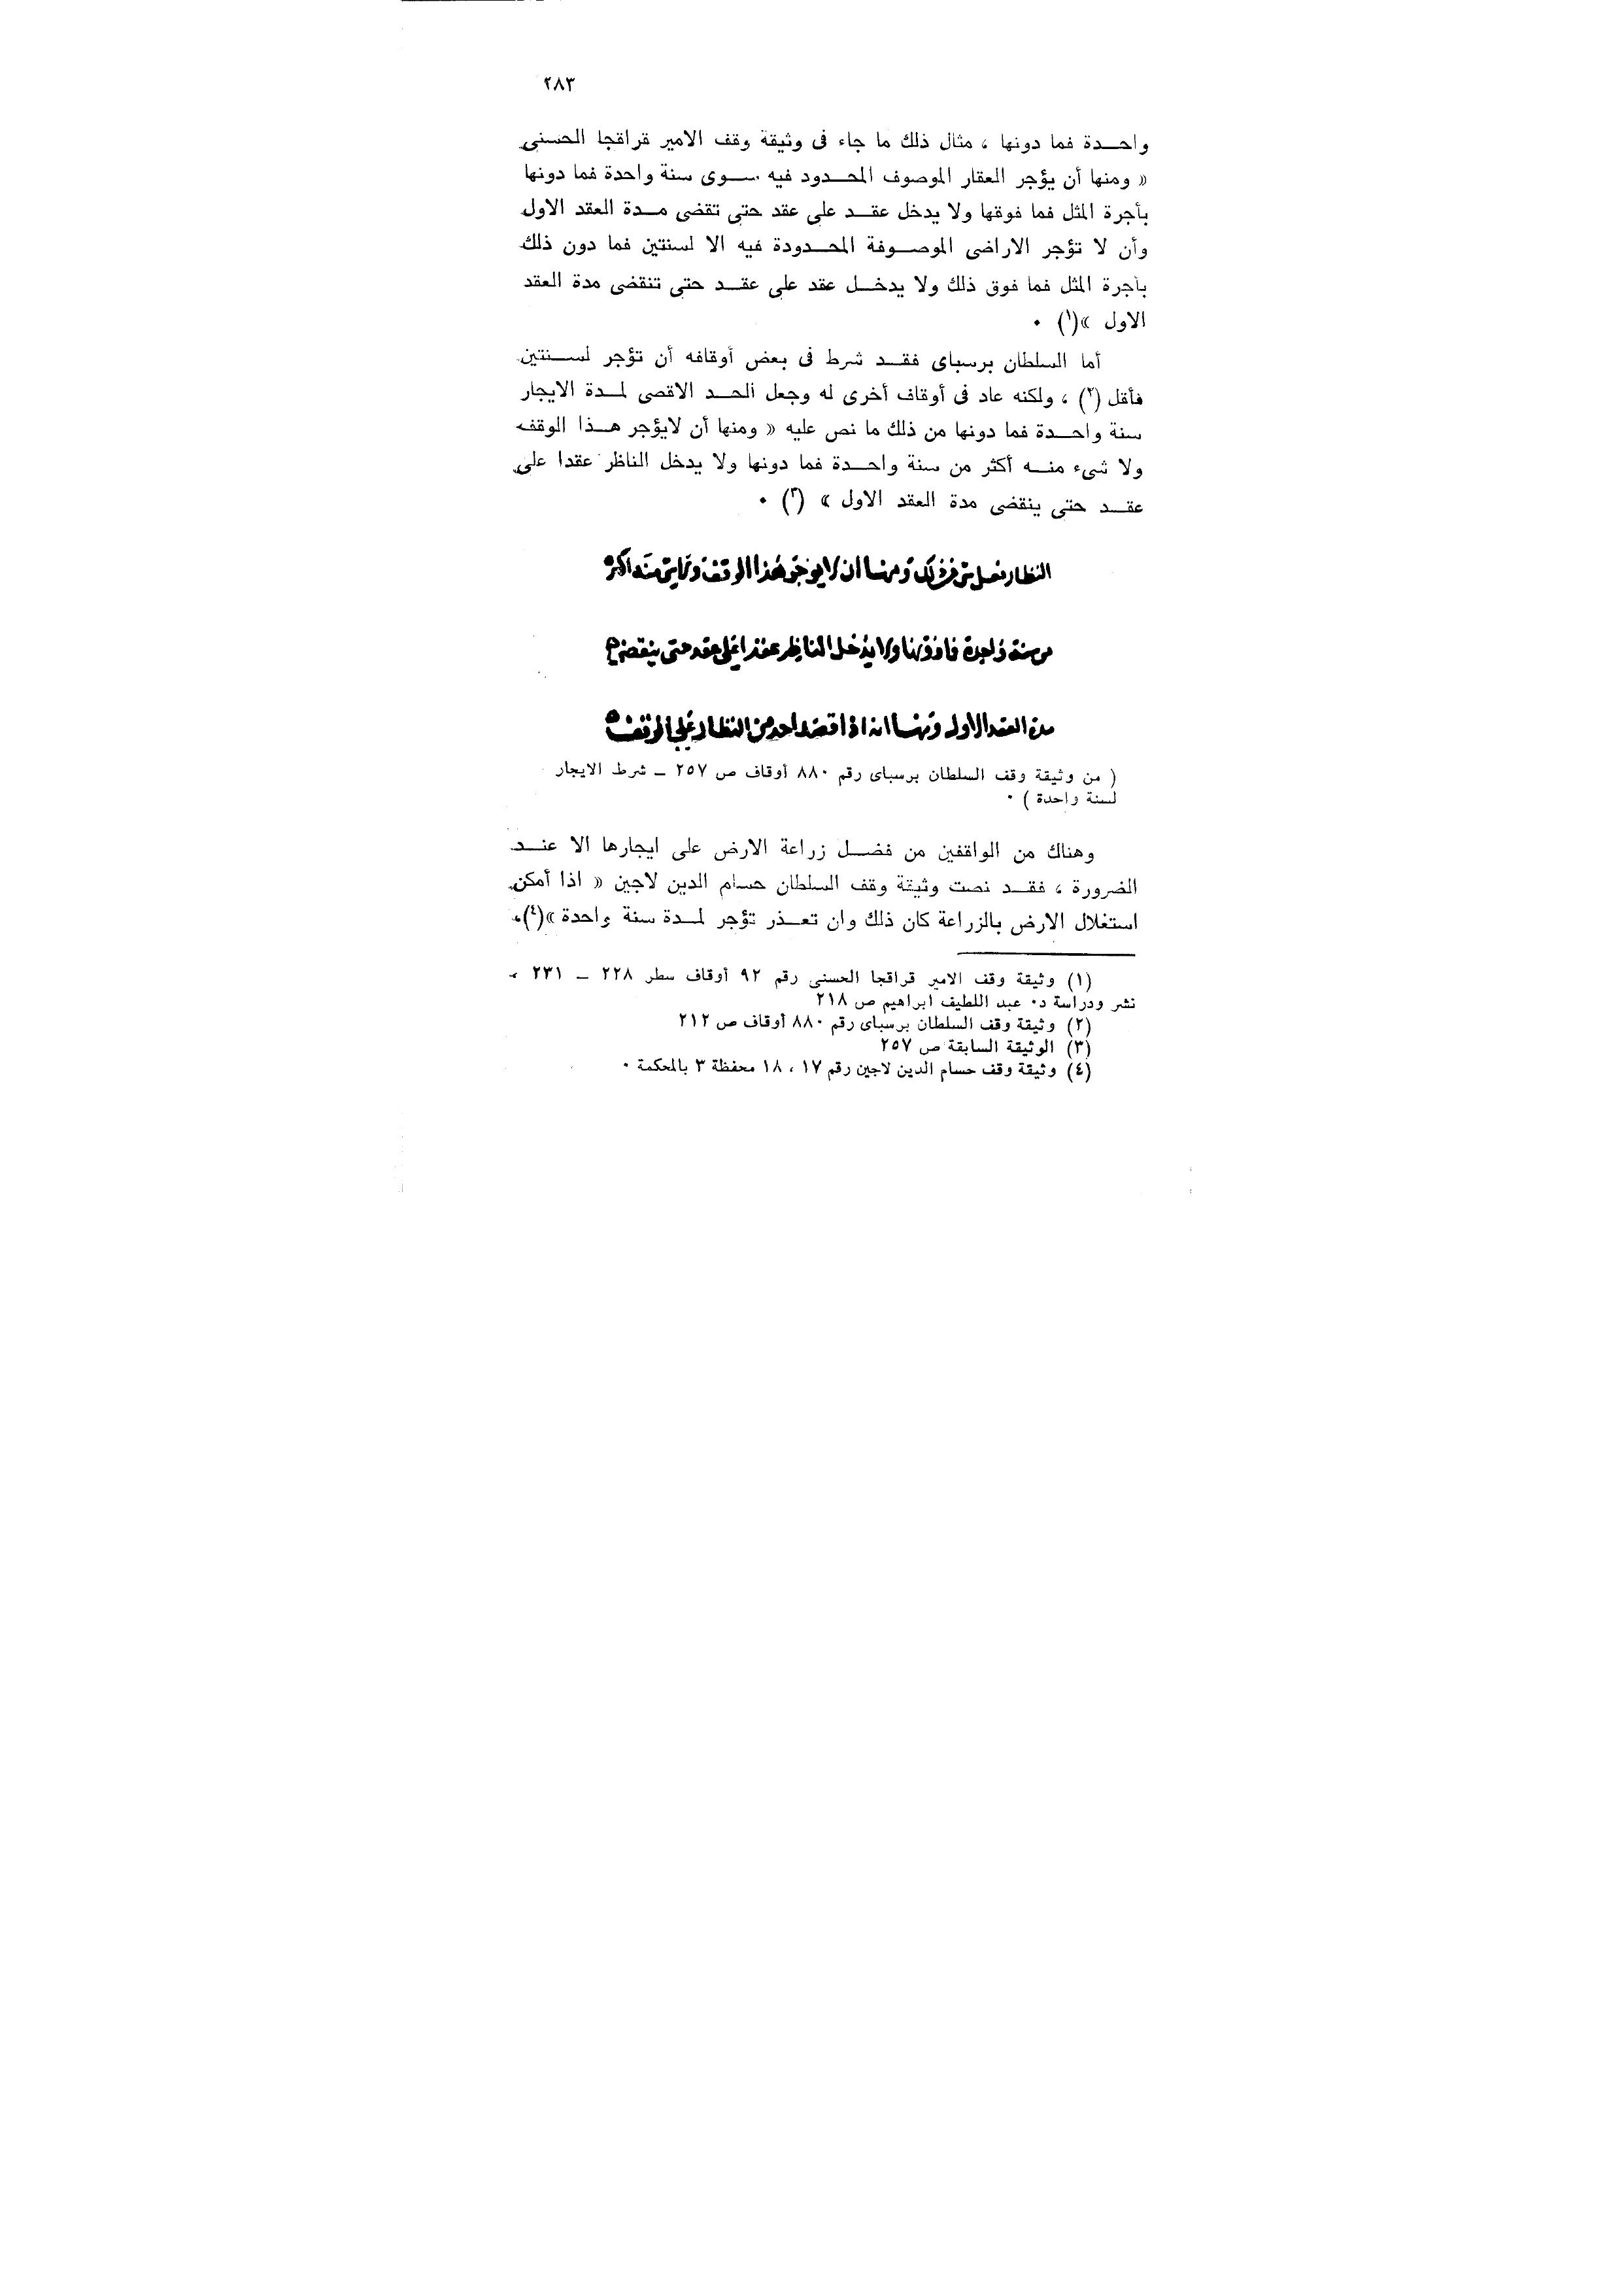 ٢٨٣
واحـدة فما دونها ، مثال ذلك ما جاء فى وثيقة وقف الامير قراقجا الحسنى
« ومنها أن يؤجر العقار الموصوف المحـدود فيه سـوى سنة واحدة فما دونها
بأجرة المثل فما فوقها ولا يدخل عقـد على عقد حتى تقضى مـدة العقد الاول
وأن لا تؤجر الاراضى الموصـوفة المحـدودة فيه الا لسنتين فما دون ذلك
بأجرة المثل فما فوق ذلك ولا يدخـل عقد على عقـد حتى تنقضى مدة العقد
الاول »(١) ٠
أما السلطان برسباى فقـد شرط فى بعض أوقافه أن تؤجر لسـنتين
فأقل (٢) ، ولكنه عاد فى أوقاف أخرى له وجعل الحـد الاقصى لمـدة الايجار
سنة واحـدة فما دونها من ذلك ما نص عليه « ومنها أن لايؤجر هـذا الوقف
ولا شىء منـه أكثر من سنة واحـدة فما دونها ولا يدخل الناظر عقدا على
عقـد حتى ينقضى مدة العقد الاول » (٣) ٠
النظار ومنها ان لا يوجر هذا الوقف ولا شى منه اكثر
من سنة واحدة فما دونها ولا يدخل الناظر عقدا على عقد حتى ينقضى
مدة العقد الاول ومنها انه اذا قصد احد من النظار على الوقف
( من وثيقة وقف السلطان برسباى رقم ٨٨٠ أوقاف ص ٢٥٧ ـ شرط الايجار
لسنة واحدة ) ٠
وهناك من الواقفين من فضـل زراعة الارض على ايجارها الا عنـد
الضرورة ، فقـد نصت وثيقة وقف السلطان حسام الدين لاجين « اذا أمكن
استغلال الارض بالزراعة كان ذلك وان تعـذر تؤجر لمـدة سنة واحدة »(٤)،
(١) وثيقة وقف الامير قراقجا الحسنى رقم ٩٢ أوقاف سطر ٢٢٨ ـ ٢٣١ ،
نشر ودراسة د٠ عبد اللطيف ابراهيم ص ٢١٨
(٢) وثيقة وقف السلطان برسباى رقم ٨٨٠ أوقاف ص ٢١٢
(٣) الوثيقة السابقة ص ٢٥٧
(٤) وثيقة وقف حسام الدين لاجين رقم ١٧ ، ١٨ محفظة ٣ بالمحكمة ٠